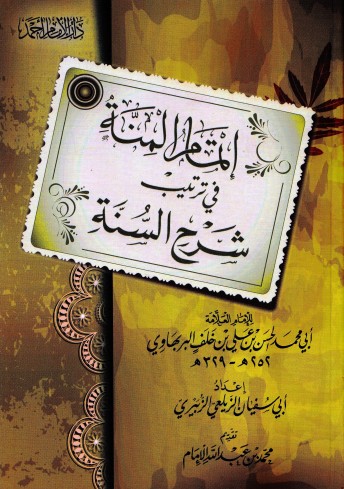 دار الإمام أحمد
إتمام المنة
في ترتيب
شرح السنة
للإمام العلامة
أبي محمد الحسن بن علي بن خلف البربهاري
٢٥٢هـ - ٣٢٩هـ
إعداد
أبي سفيان الزيلعي الزبيري
تقديم
محمد بن عبد الله الإمام